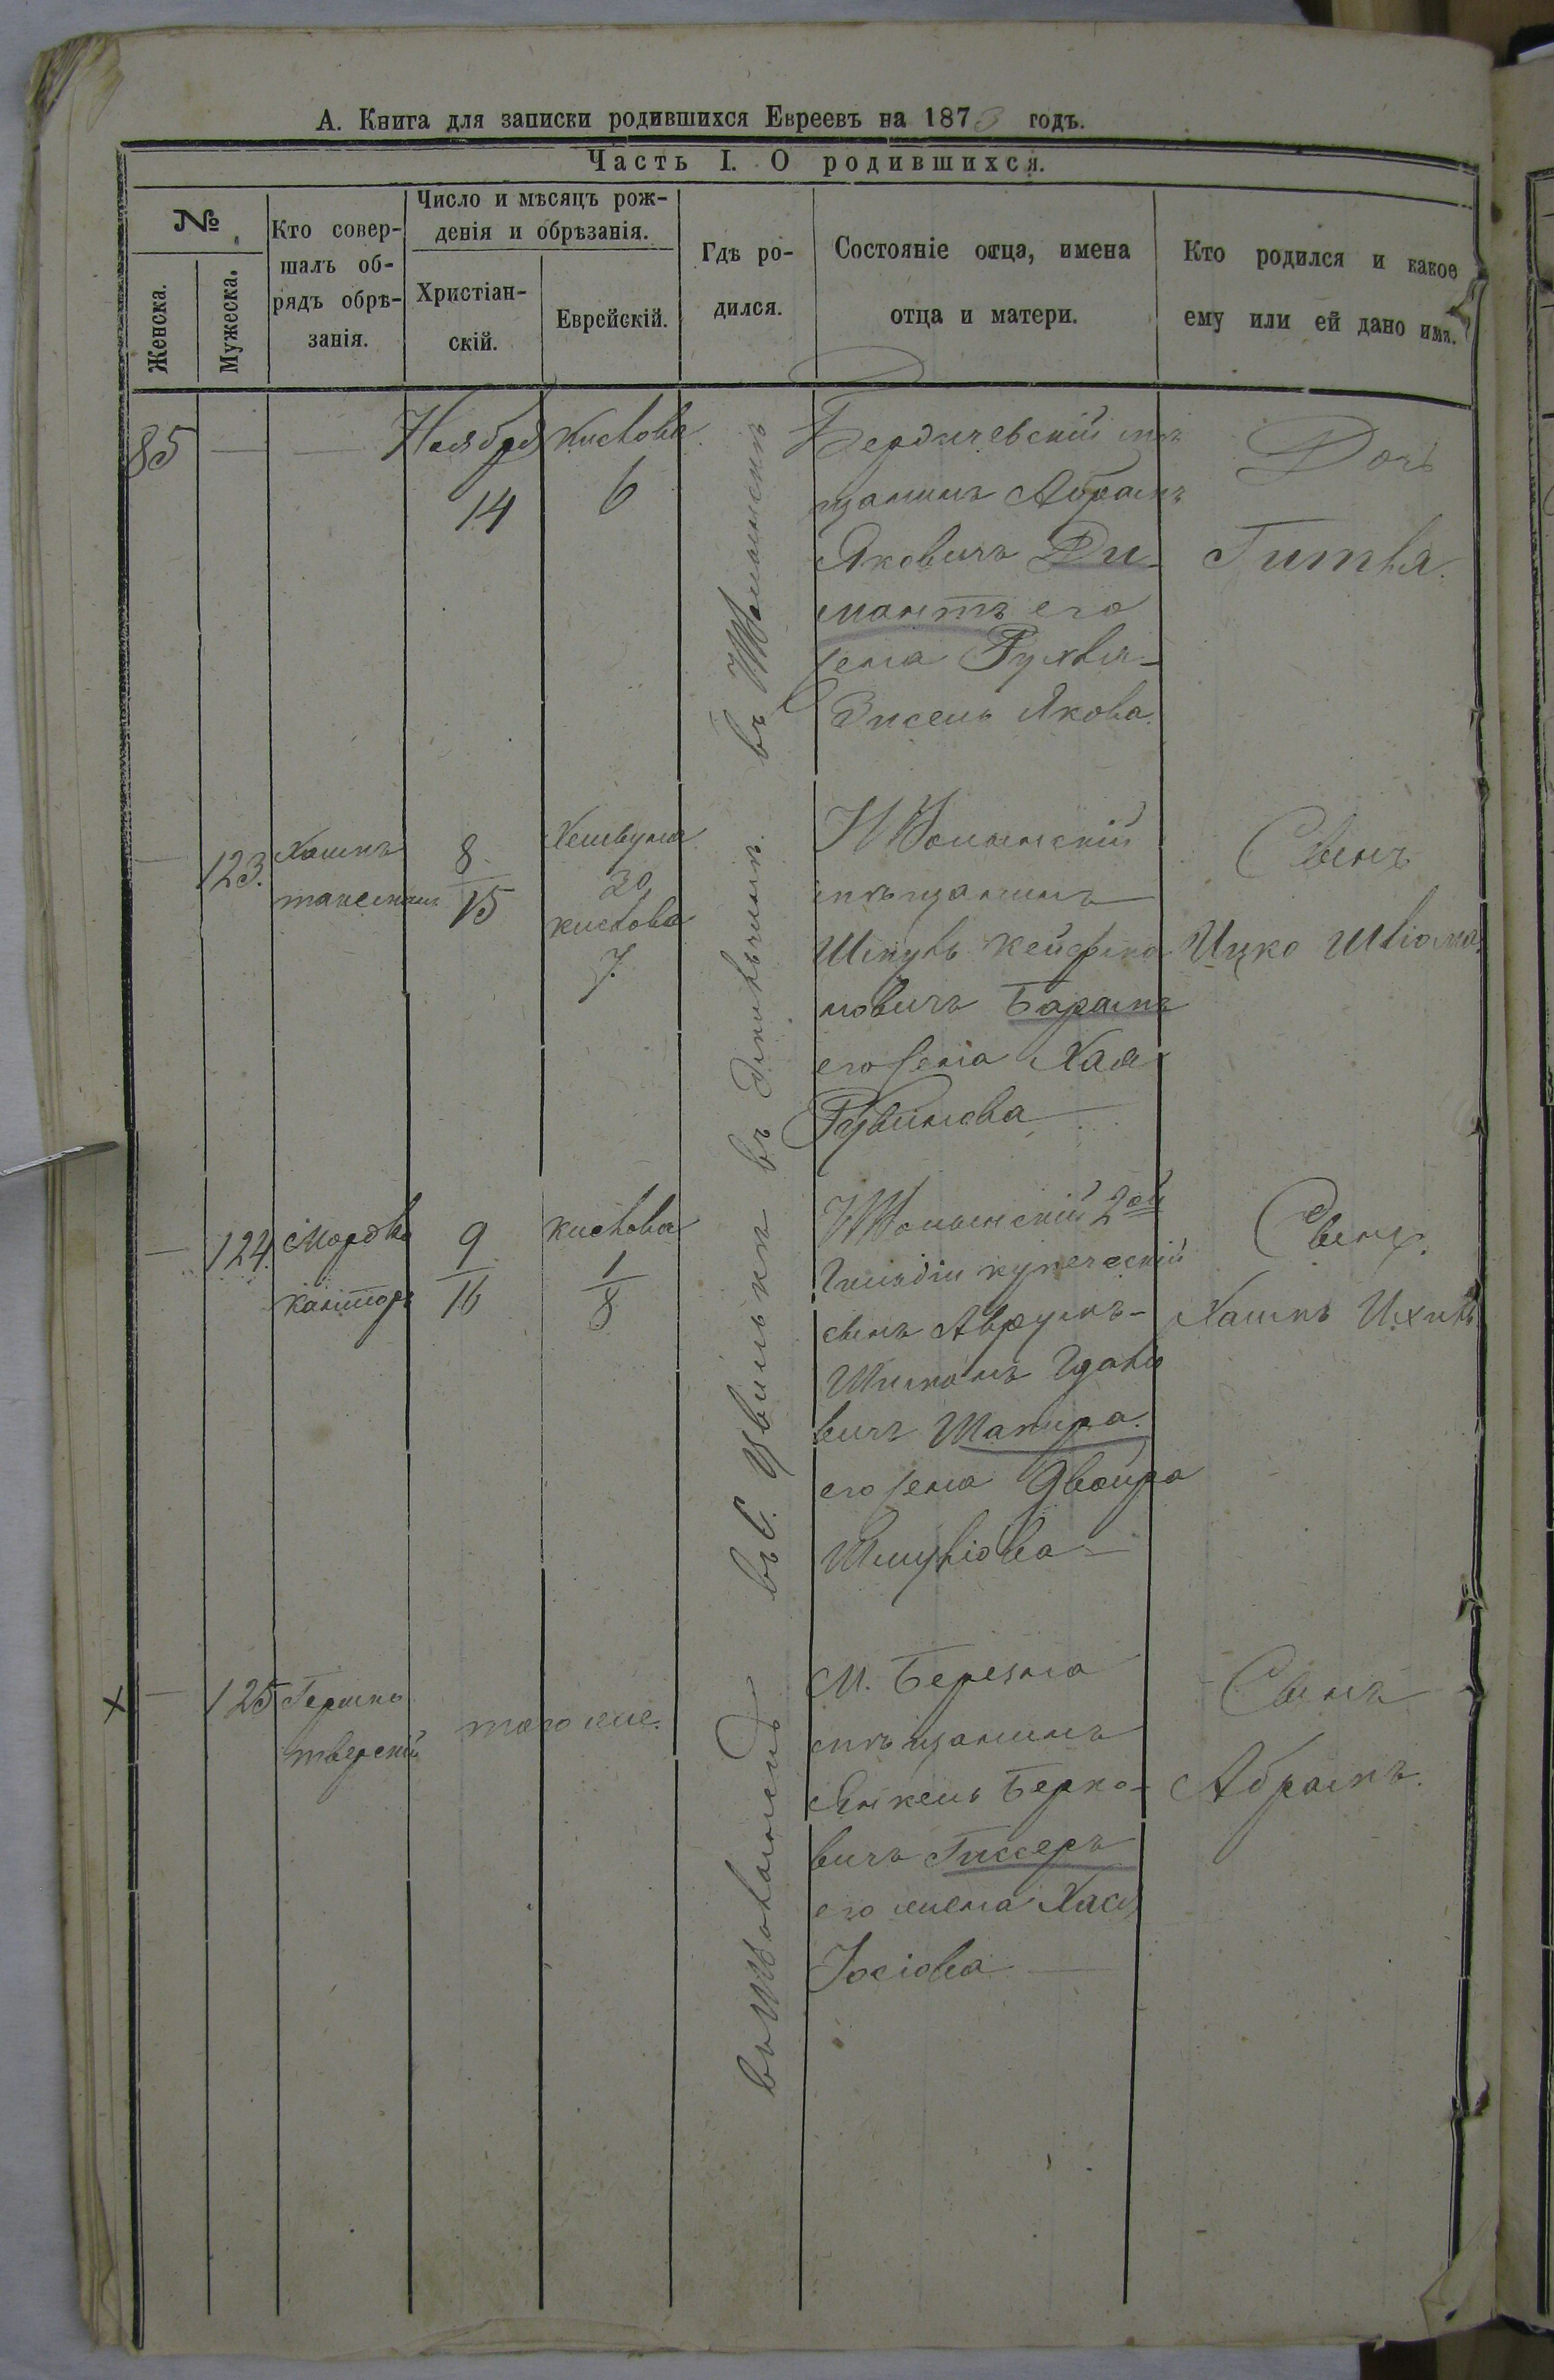 А. Книга для записки родившихся Евреевъ на 1873 годъ.
Часть I. О родившихся.
№
Женска.
Мужеска.
Кто совер-
шалъ об-
рядъ обрѣ-
занія.
Число и мѣсяцъ рож-
денія и обрѣзанія.
Христіан-
скій.
Еврейскій.
Гдѣ ро-
дился.
Состояніе отца, имена
отца и матери.
Кто родился и какое
ему или ей дано имя.
85
Ноября
14
Кислова
6
Бердичевскій мѣ
щанинъ Абрамъ
Яковичъ Ди-
мантъ его
жена Рухля-
Зисель Якова
Дочь
Гитля.
123.
Хаимъ
8
15
Хешвуна
30
кислова
7.
мѣщанинъ
Шмуль
новичъ Барамъ
его жена Хая
Рувинова
Сынъ
Ицко Шліома.
124.
Мордко
Канторъ
9
16
Кислова
1
8
2ой
Гильдіи купеческій
сынъ Аврумъ-
Шимонъ Гдаліо
вичъ Шапира.
его жена Двойра
Шмуліова
Сынъ.
Хаимъ Ихиль
125
Гершко
тверскій
того же.
М. Березна
мѣщанинъ
Янкель Берко-
вичъ Гиссеръ
его жена Хася
Іосіова
Сынъ
Абрамъ.